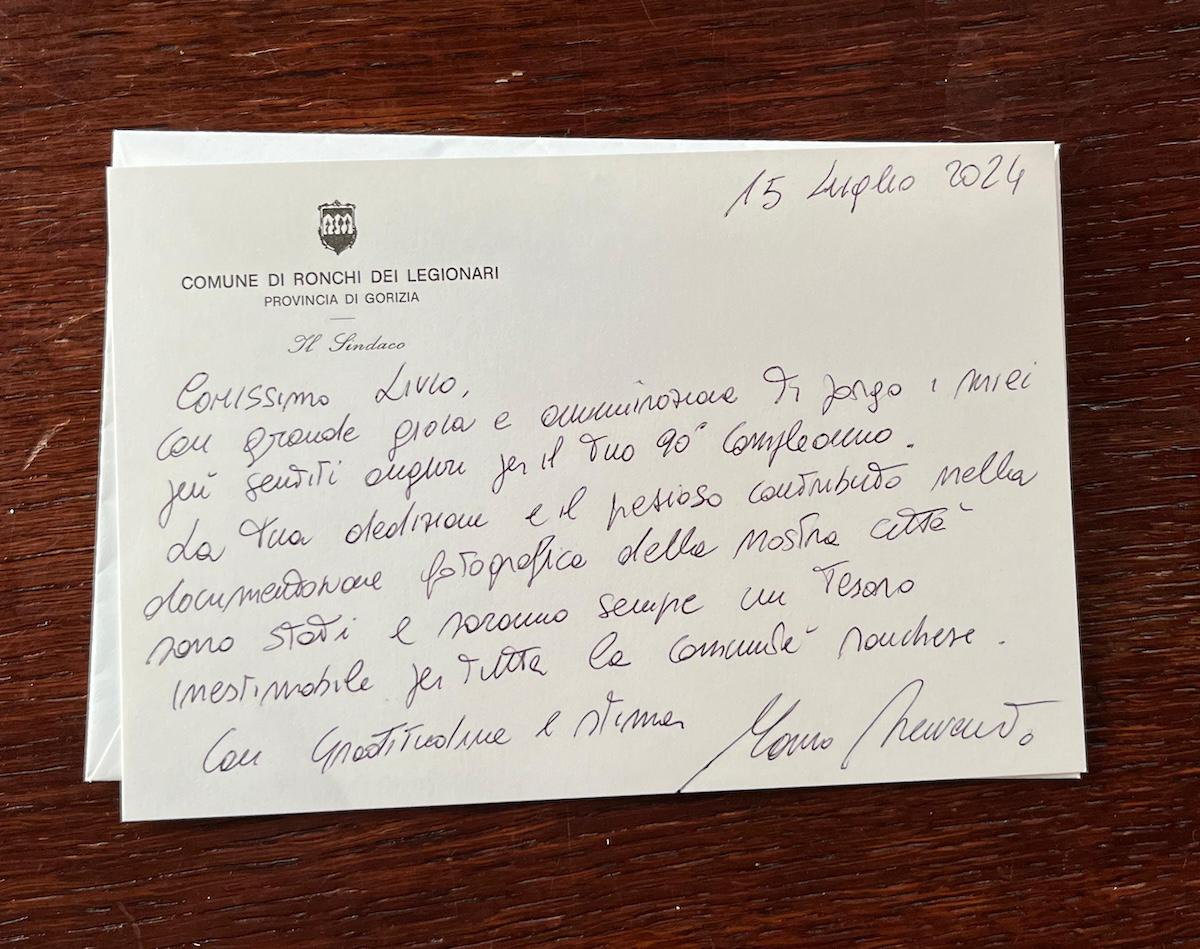 15 Luglio 2024
COMUNE DI RONCHI DEI LEGIONARI
PROVINCIA DI GORIZIA
Il Sindaco
Carissimo Livio,
con grande gioia e ammirazione Ti porgo i miei
più sentiti auguri per il tuo 90° compleanno.
La Tua dedizione e il prezioso contributo nella
documentazione fotografica della nostra città
sono stati e saranno sempre un Tesoro
inestimabile per tutta la comunità ronchese.
Con Gratitudine e stima
Mauro Benvenuto